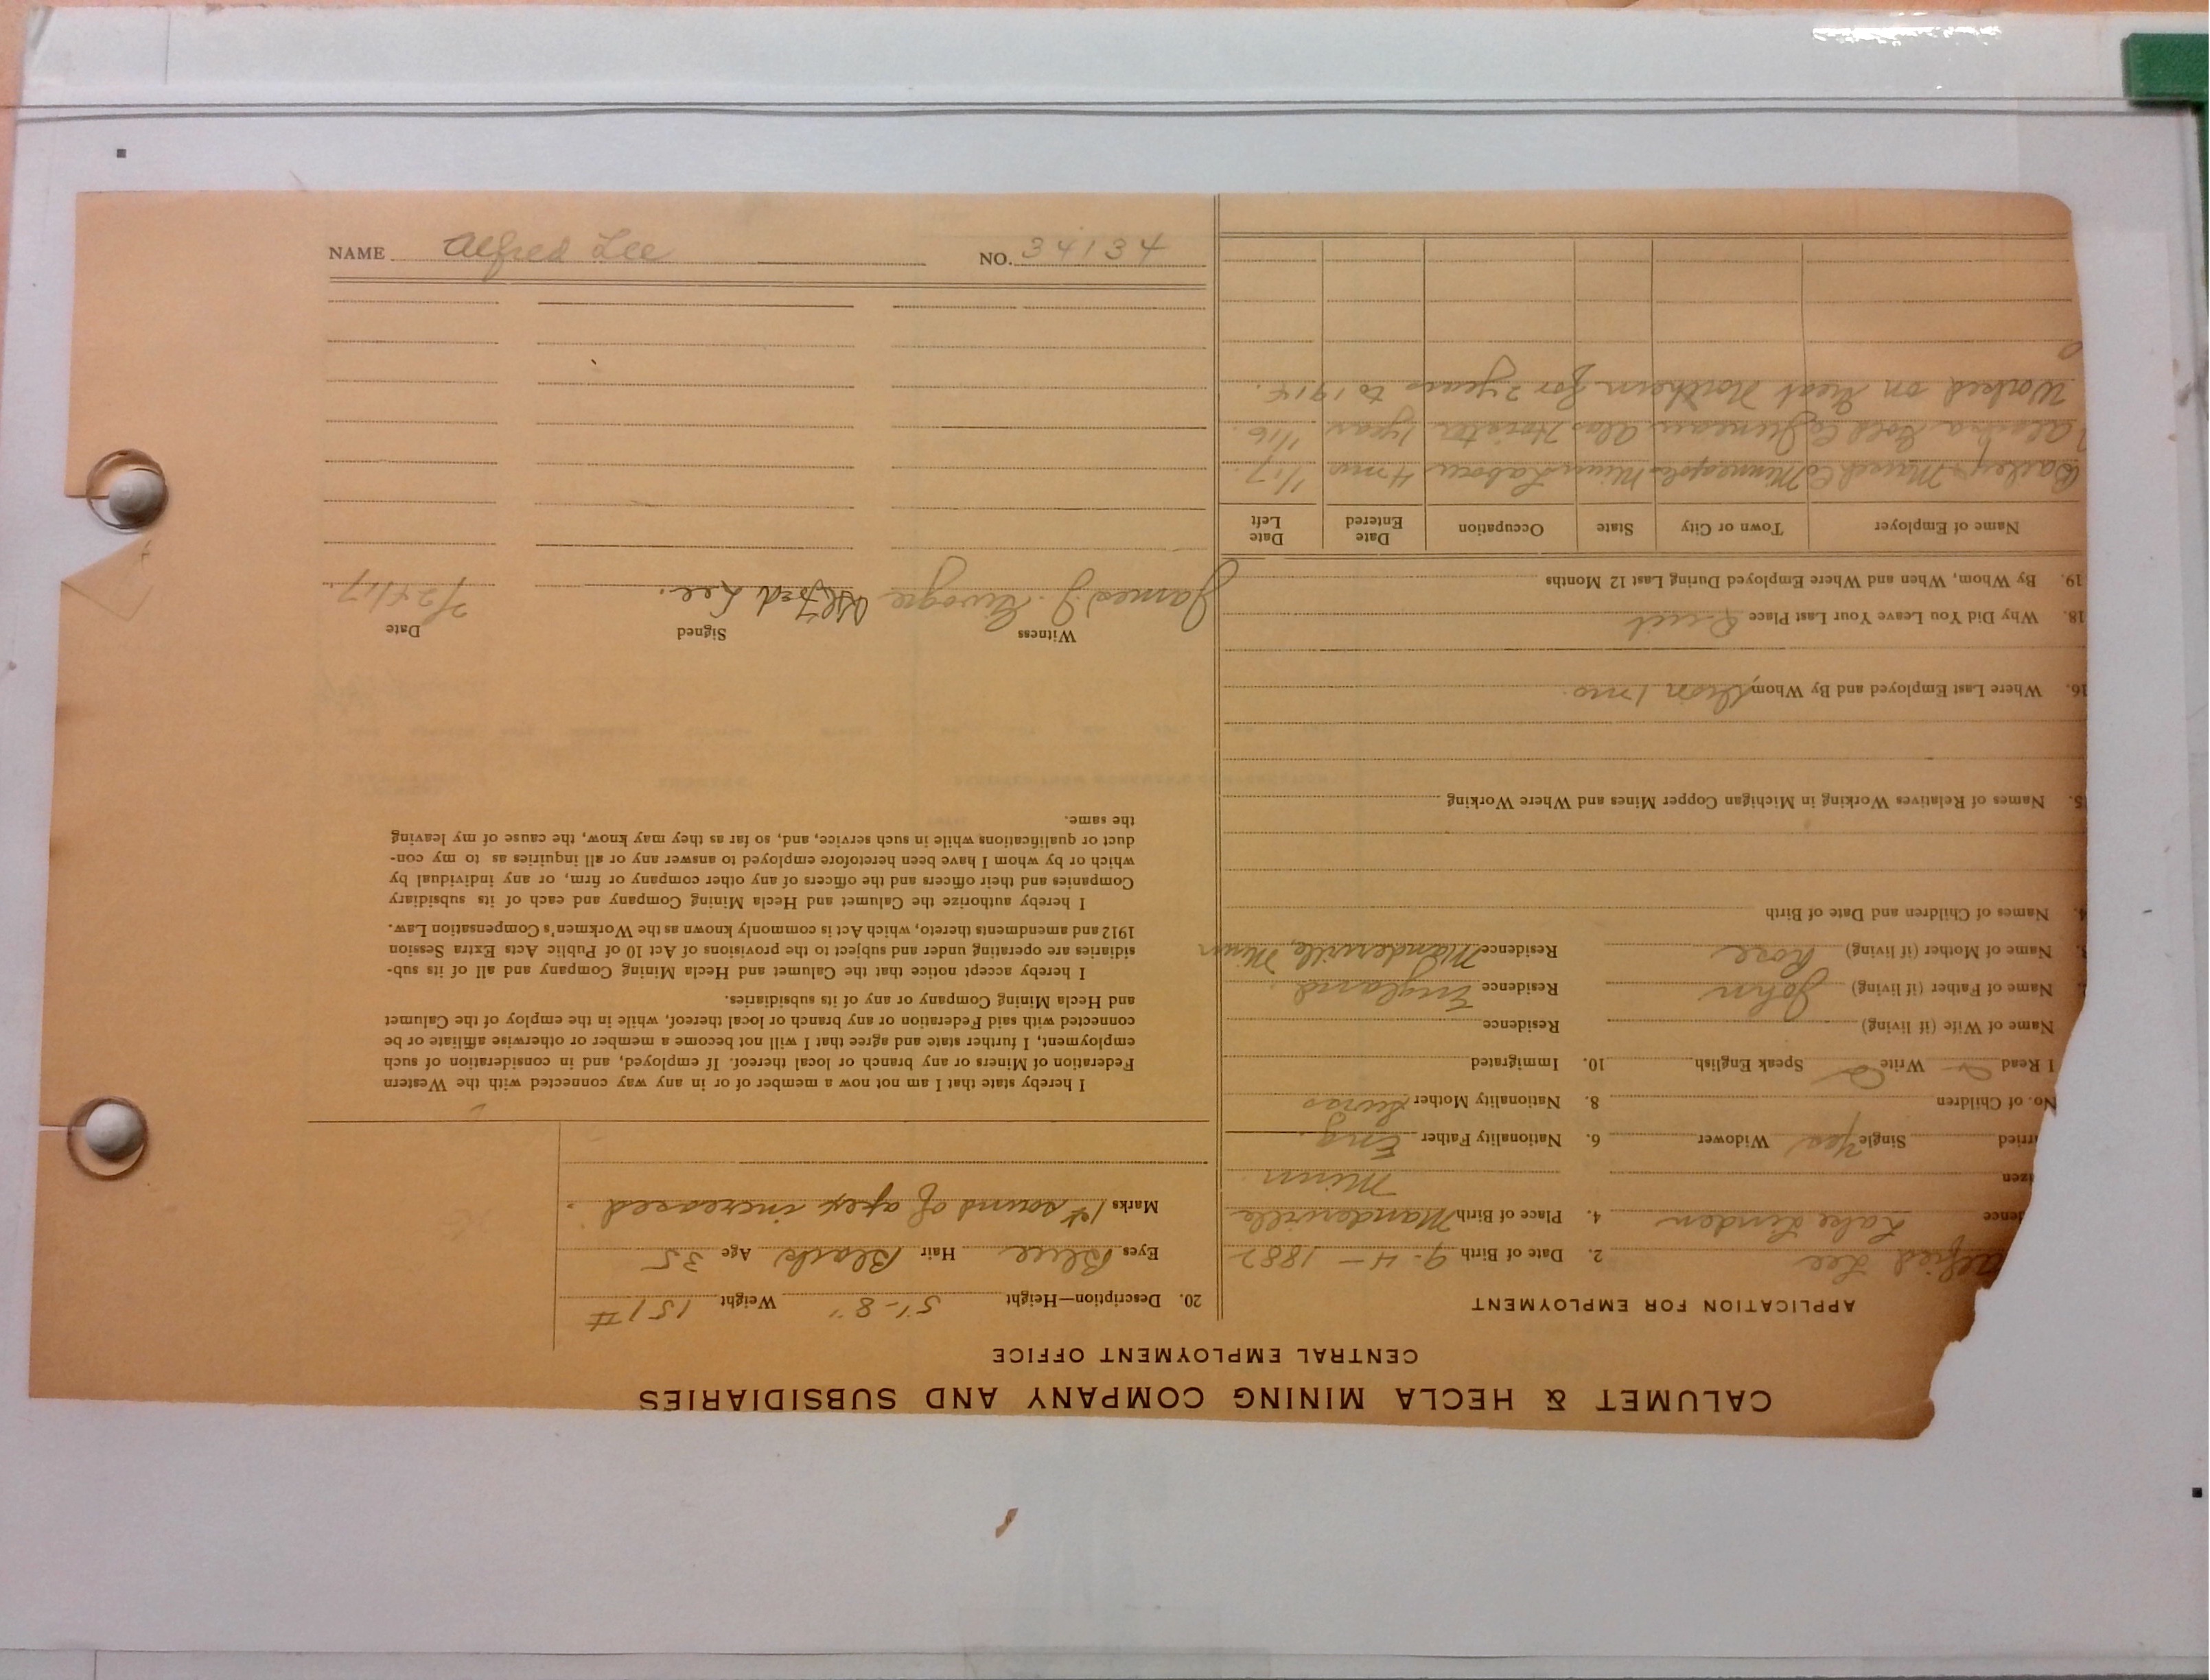 NAME Alfred Lee NO. 34134
CALUMET & HECLA MINING COMPANY AND SUBSIDIARIES
CENTRAL EMPLOYMENT OFFICE
APPLICATION FOR EMPLOYMENT
Alfred Lee 2. Date of Birth 9-4-1882
dence Lake Linden 4. Place of Birth Manderville
izen Minn
rried Single Yes Widower 6. Nationality Father Eng.
No. of Children 8. Nationality Mother Swiss
1 Read Write Speak English 10. Immigrated
Name of Wife (if living) Residence
Name of Father (if living) John Residence England.
3. Name of Mother (if living) Rose Residence Manderville, Minn
4. Names of Children and Date of Birth
5. Names of Relatives Working in Michigan Copper Mines and Where Working
16. Where Last Employed and By Whom 1 mo.
18. Why Did You Leave Your Last Place Quit
19. By Whom, When and Where Employed During Last 12 Months
Name of Employer Town or City State Occupation Date Entered Date Left
Bailey Marsh Co Minneapolis Minn Labour 4 mo 1/17.
Alaska Gold Co Juneau Alas Hoister 1 year 1/16.
Worked on Great Northern for 2 years to 1914.
20. Description—Height 5'-8" Weight 151#
Eyes Blue Hair Black Age 35
Marks 1st sound of apex increased.
I hereby state that I am not now a member of or in any way connected with the Western
Federation of Miners or any branch or local thereof. If employed, and in consideration of such
employment, I further state and agree that I will not become a member or otherwise affiliate or be
connected with said Federation or any branch or local thereof, while in the employ of the Calumet
and Hecla Mining Company or any of its subsidiaries.
I hereby accept notice that the Calumet and Hecla Mining Company and all of its sub-
sidiaries are operating under and subject to the provisions of Act 10 of Public Acts Extra Session
1912 and amendments thereto, which Act is commonly known as the Workmen's Compensation Law.
I hereby authorize the Calumet and Hecla Mining Company and each of its subsidiary
Companies and their officers and the officers of any other company or firm, or any individual by
which or by whom I have been heretofore employed to answer any or all inquiries as to my con-
duct or qualifications while in such service, and, so far as they may know, the cause of my leaving
the same.
Witness Signed Date
James J. Alfred Lee. 7/24/17.